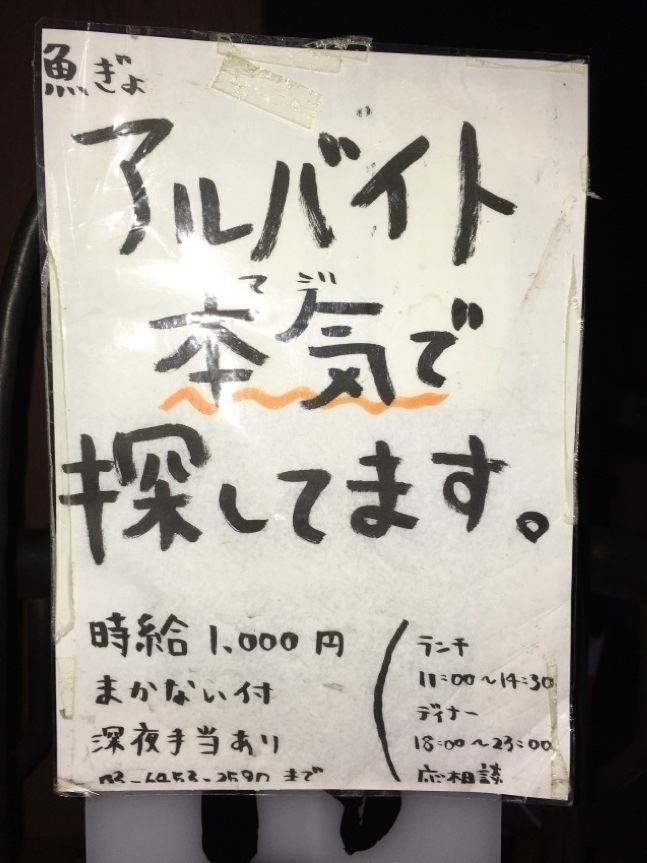 魚ぎょ
アルバイト
マジ
本気で
探してます。
時給 1,000円
まかない付
深夜手当あり
まで
ランチ
11:00〜14:30
ディナー
18:00〜23:00
応相談